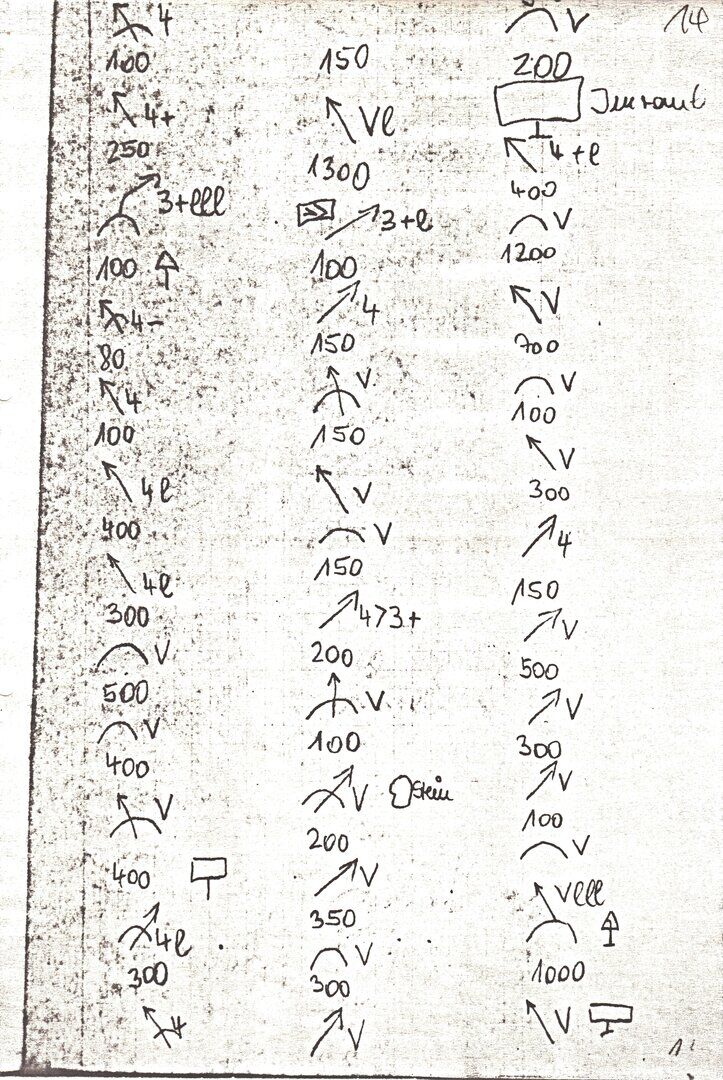 14
4
100
4+
250
3+lll
100
4-
80
4
100
4l
400
4l
300
V
500
V
400
V
400
4l
300
4
150
Vl
1300
>>
3+l
100
4
150
V
150
V
V
150
4>3+
200
V
100
V Stein
200
V
350
V
300
V
V
200
4+l
400
V
1200
V
700
V
100
V
300
4
150
V
500
V
300
V
100
V
Vlll
1000
V